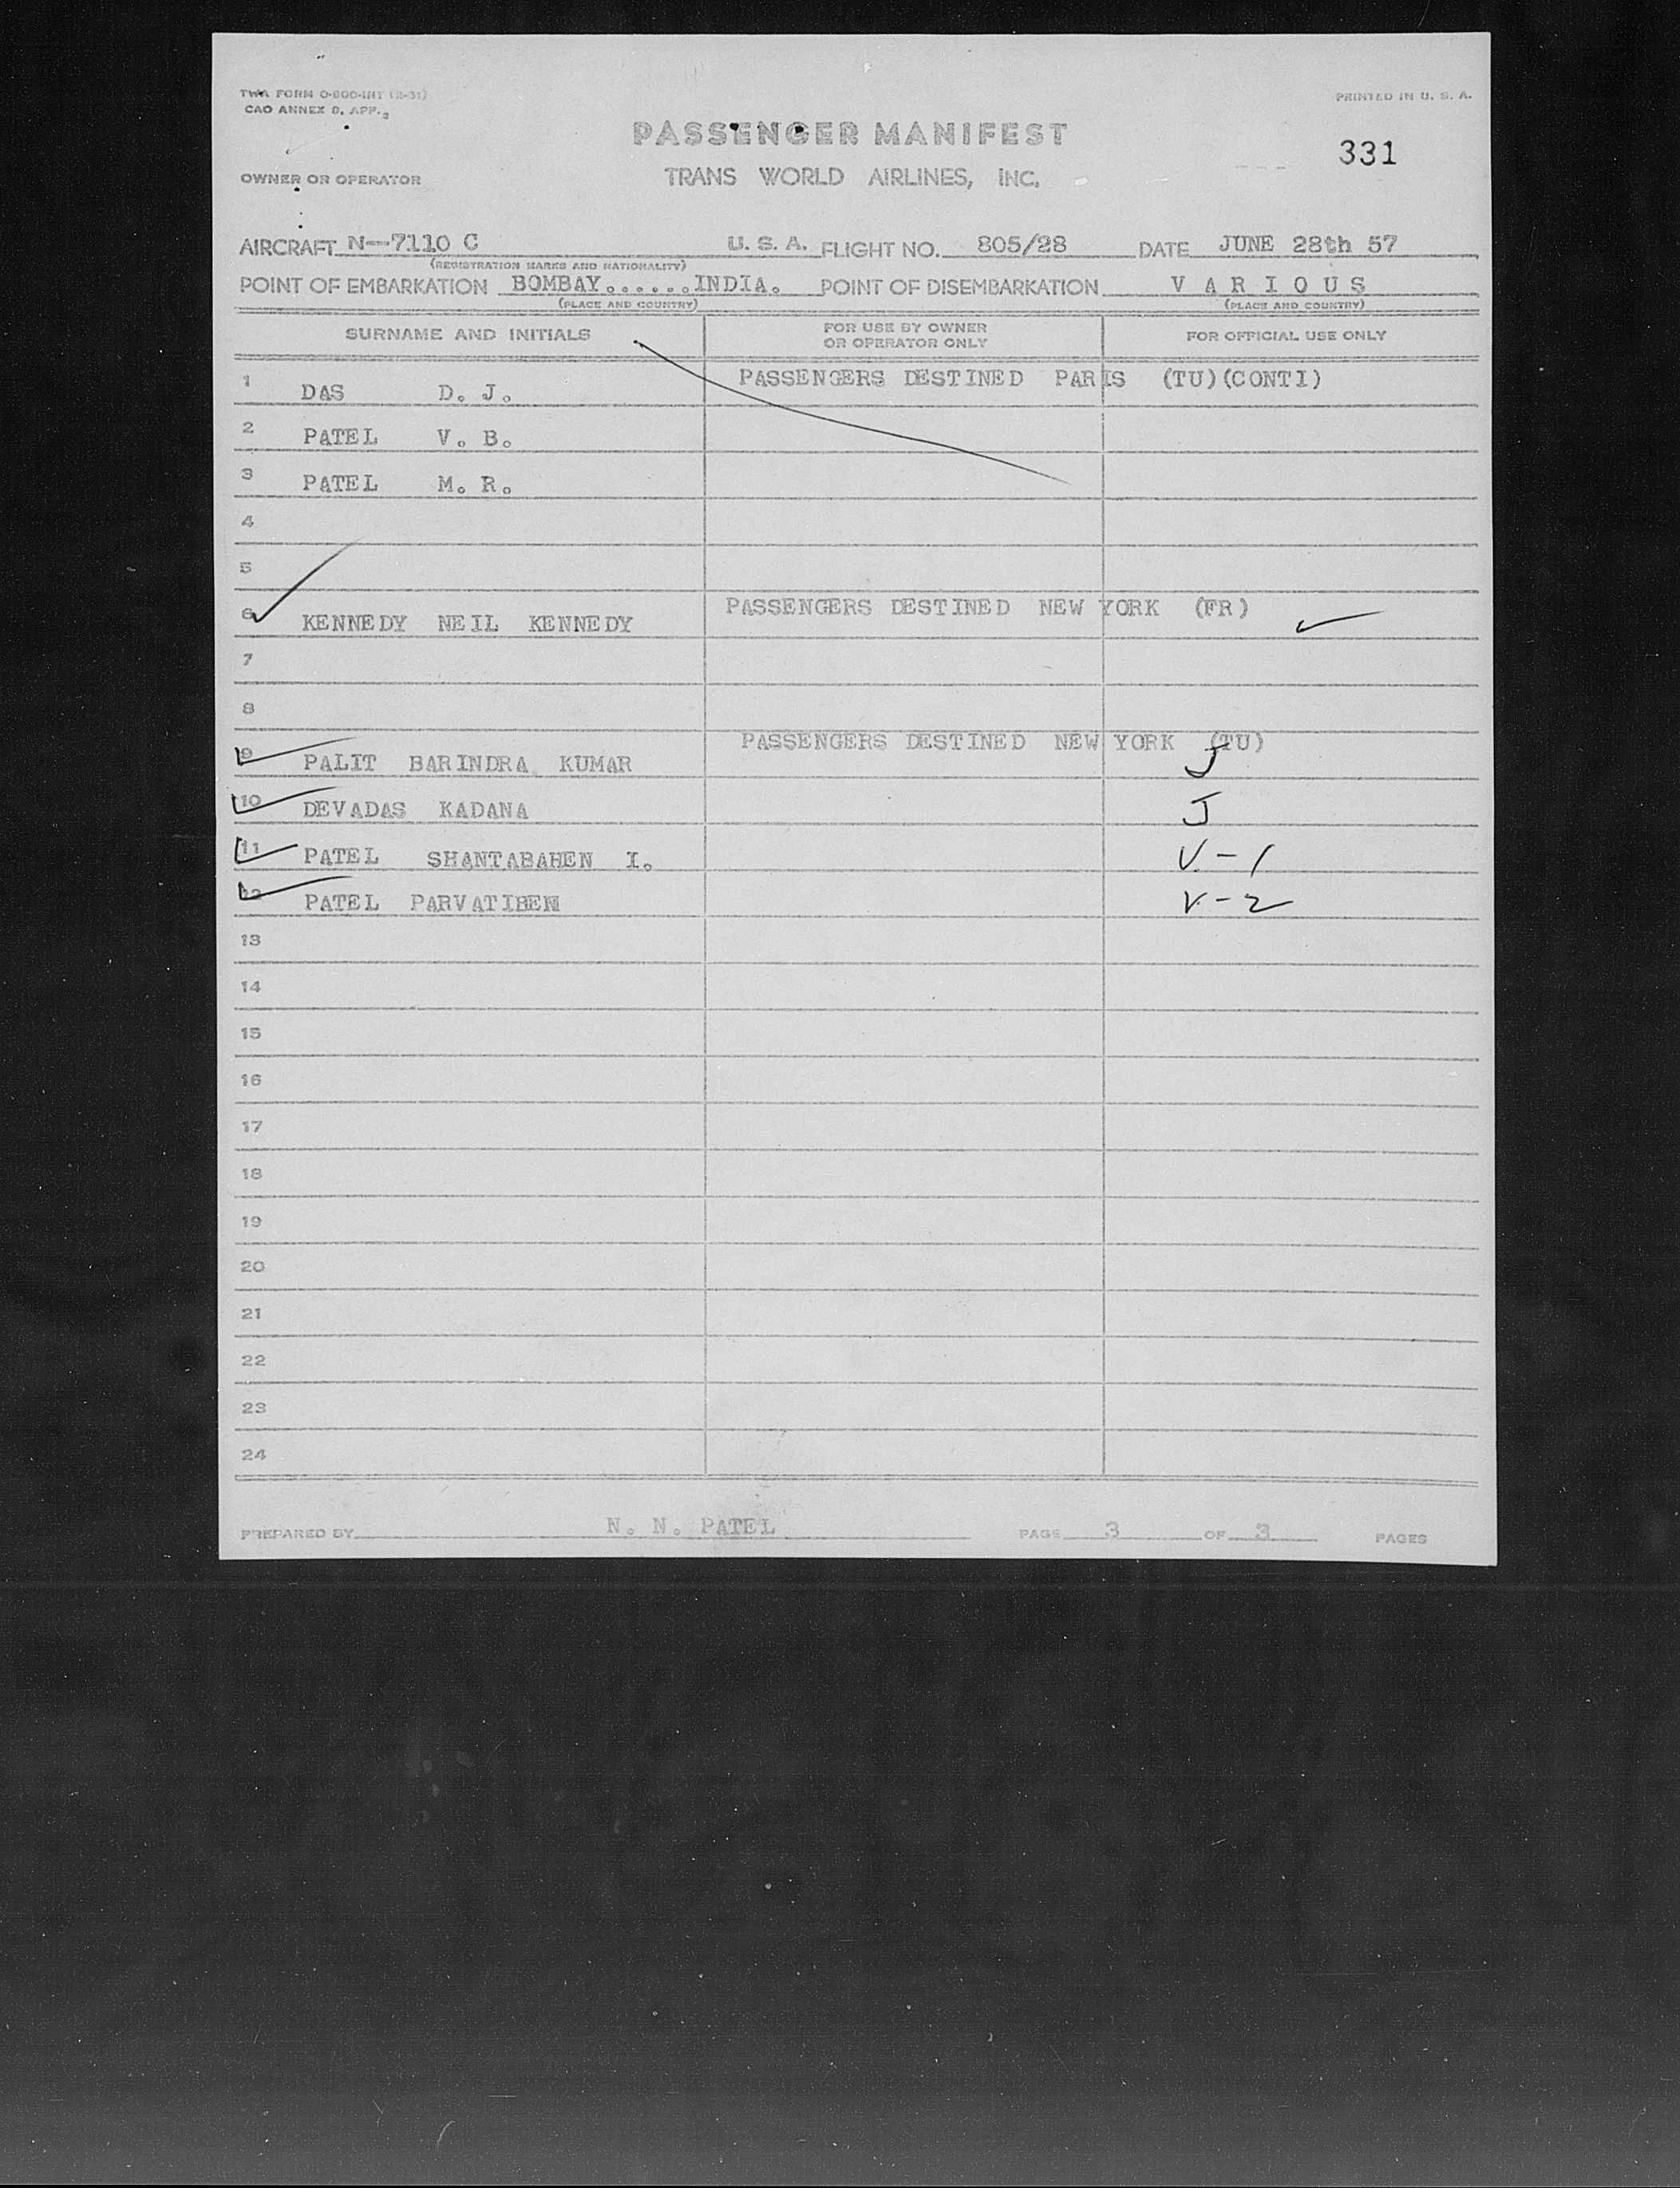 TWA FORM O-800-INT (2-51)
CAO ANNEX 9, APP. 3
PRINTED IN U. S. A.
PASSENGER MANIFEST
331
OWNER OR OPERATOR
TRANS WORLD AIRLINES, INC.
AIRCRAFT N--7110 C U. S. A. FLIGHT NO. 805/28 DATE JUNE 28th 57
(REGISTRATION MARKS AND NATIONALITY)
POINT OF EMBARKATION BOMBAY......INDIA. POINT OF DISEMBARKATION V A R I O U S
(PLACE AND COUNTRY) (PLACE AND COUNTRY)
SURNAME AND INITIALS FOR USE BY OWNER OR OPERATOR ONLY FOR OFFICIAL USE ONLY
1 DAS D. J. PASSENGERS DESTINED PARIS (TU)(CONTI)
2 PATEL V. B.
3 PATEL M. R.
4
5
6 KENNEDY NEIL KENNEDY PASSENGERS DESTINED NEW YORK (FR)
7
8
9 PALIT BARINDRA KUMAR PASSENGERS DESTINED NEW YORK (TU) J
10 DEVADAS KADANA J
11 PATEL SHANTABAHEN I. V-1
12 PATEL PARVATIBEN V-2
13
14
15
16
17
18
19
20
21
22
23
24
PREPARED BY N. N. PATEL PAGE 3 OF 3 PAGES